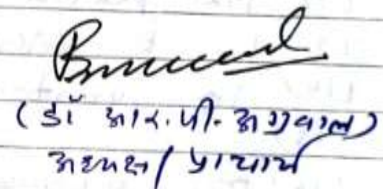 (डॉ आर.पी. अग्रवाल)
अध्यक्ष / प्राचार्य